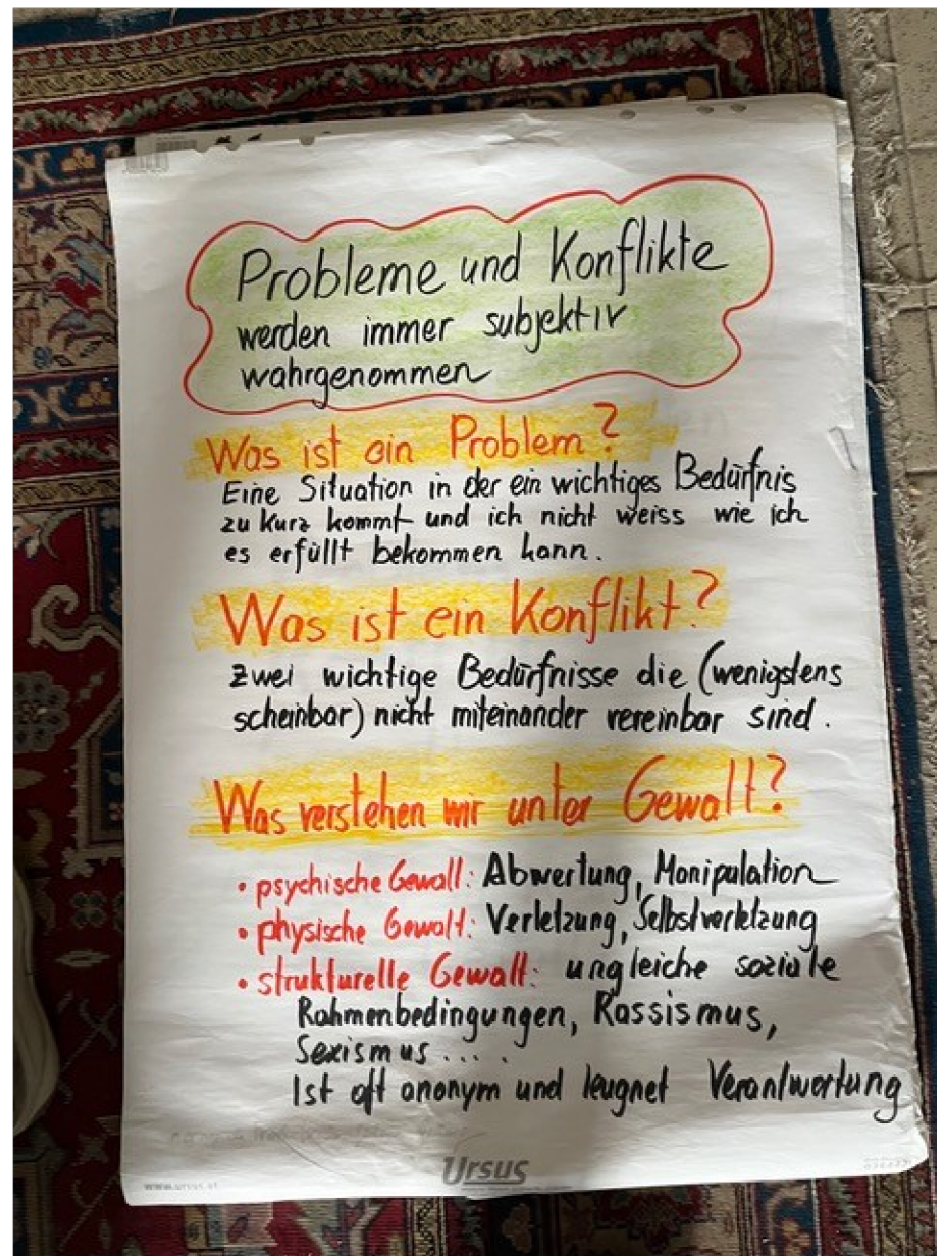 Probleme und Konflikte
werden immer subjektiv
wahrgenommen
Was ist ein Problem?
Eine Situation in der ein wichtiges Bedürfnis
zu kurz kommt und ich nicht weiss wie ich
es erfüllt bekommen kann.
Was ist ein Konflikt?
Zwei wichtige Bedürfnisse die (wenigstens
scheinbar) nicht miteinander vereinbar sind.
Was verstehen wir unter Gewalt?
• psychische Gewalt: Abwertung, Manipulation
• physische Gewalt: Verletzung, Selbstverletzung
• strukturelle Gewalt: ungleiche soziale
Rahmenbedingungen, Rassismus,
Sexismus ....
Ist oft anonym und leugnet Verantwortung
Ursus
www.ursus.at